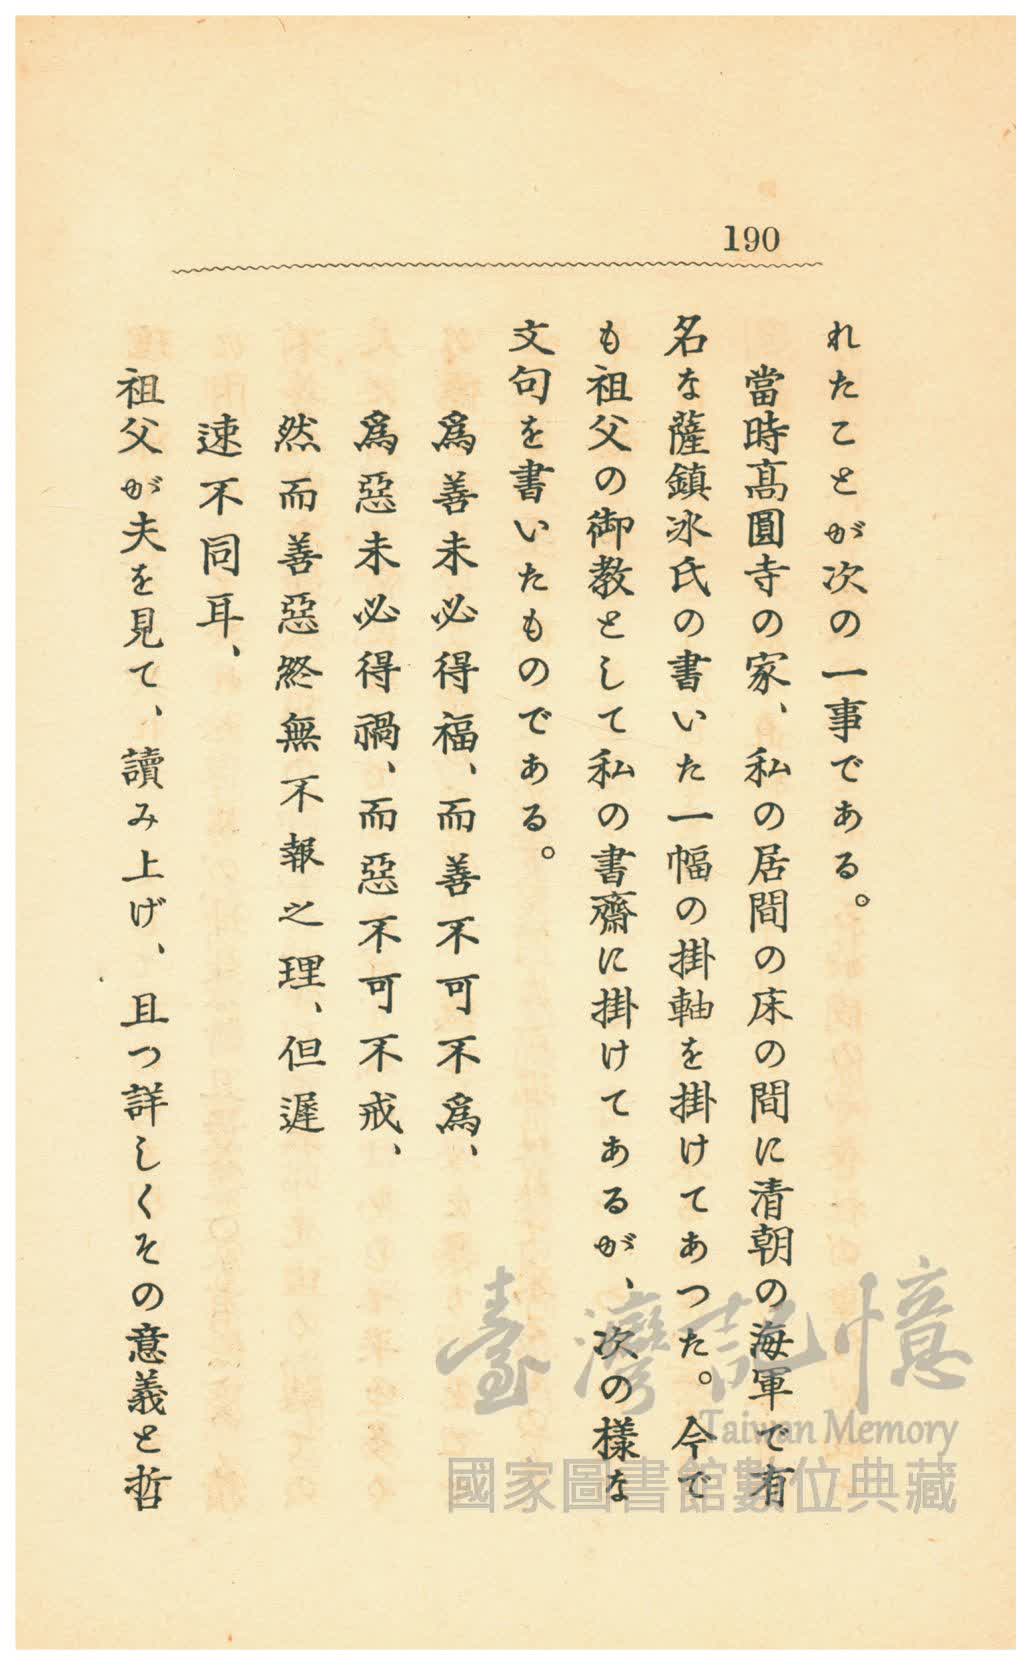 190
れたことが次の一事である。
當時高圓寺の家、私の居間の床の間に清朝の海軍で有
名な薩鎮冰氏の書いた一幅の掛軸を掛けてあつた。今で
も祖父の御教として私の書齋に掛けてあるが、次の樣な
文句を書いたものである。
爲善未必得福、而善不可不爲、
爲惡未必得禍、而惡不可不戒、
然而善惡終無不報之理、但遲
速不同耳、
祖父が夫を見て、讀み上げ、且つ詳しくその意義と哲
臺灣記憶
Taiwan Memory
國家圖書館數位典藏